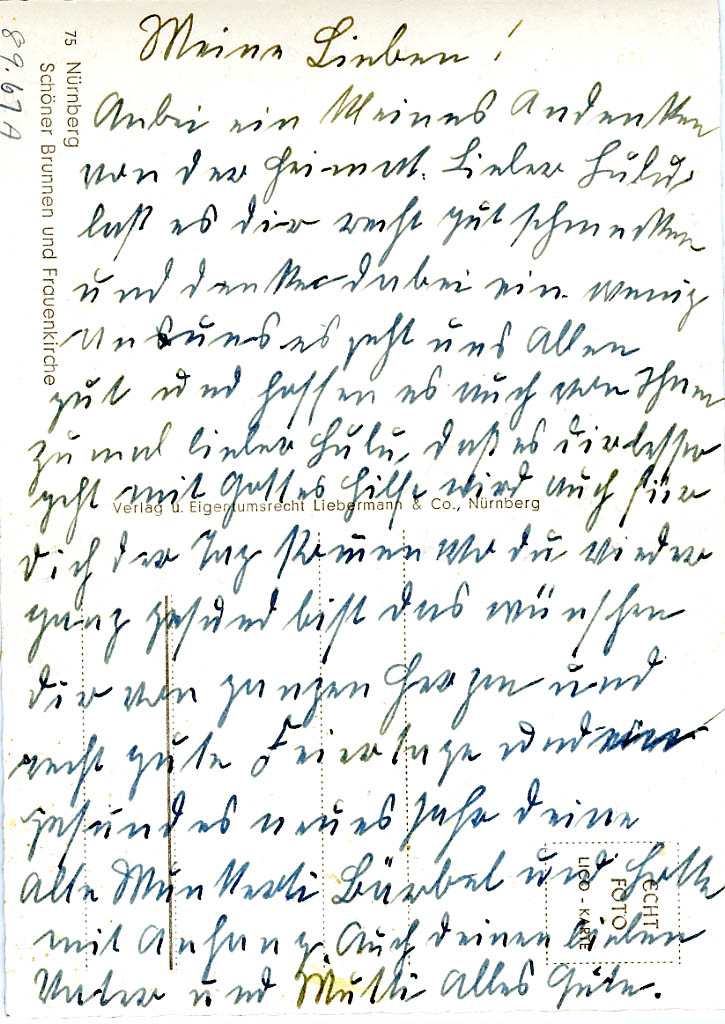 Meine Lieben!
Anbei ein kleines Andenken
von der Heimat. Lieber Lulu,
laß es dir recht gut schmecken
und denke dabei ein wenig
an uns es geht uns Allen
gut und hoffen es auch von Ihnen
zumal lieber Lulu, daß es dir besser
geht mit Gottes Hilfe wird auch für
dich der Tag kommen wo du wieder
ganz gesund bist das wünschen
dir von ganzen Herzen und
recht gute Feiertage und ein
gesundes neues Jahr deine
alte Bärbel und
mit Anhang. Auch deinen lieben
Vater und Mutti Alles Gute.
75 Nürnberg
Schöner Brunnen und Frauenkirche
89.67A
Verlag u. Eigentumsrecht Liebermann & Co., Nürnberg
ECHT
FOTO
LICO - KARTE